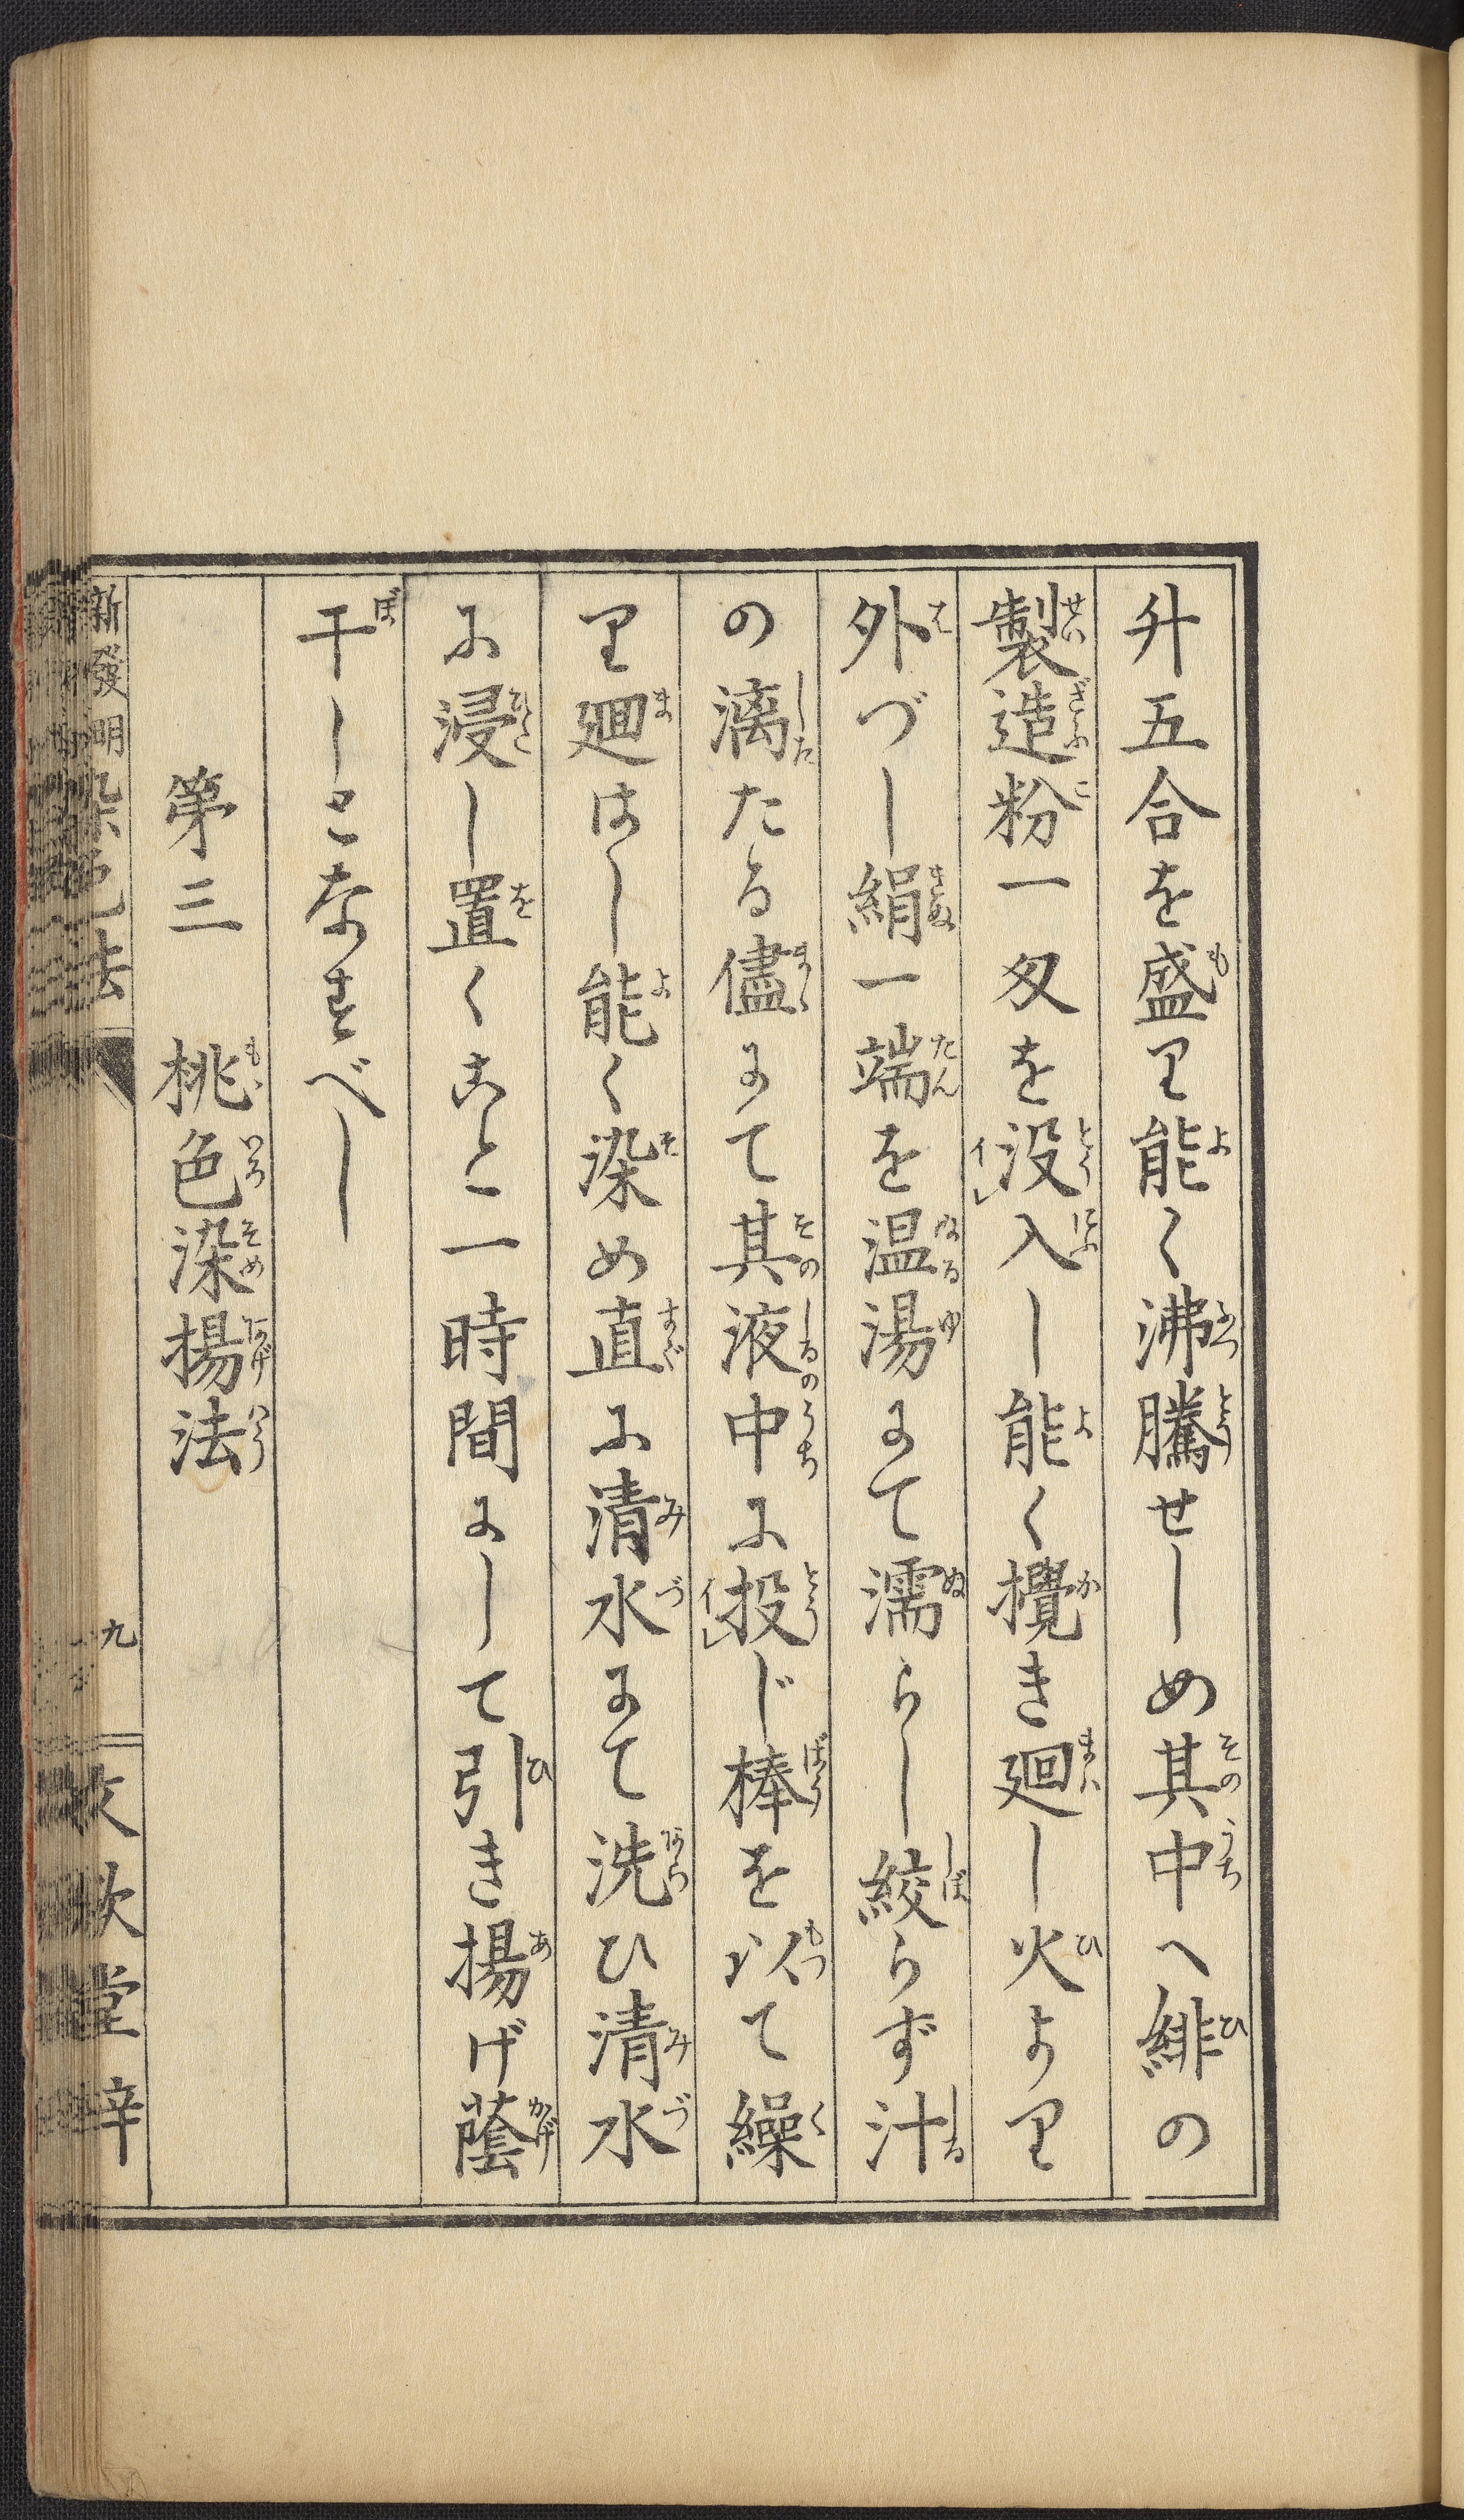 升五合を盛り能く沸騰せしめ其中へ緋の
製造粉一匁を没入し能く攪き廻し火より
外づし絹一端を温湯にて濡らし絞らず汁
の漓たる儘にて其液中に投じ棒を以て繰
り廻はし能く染め直に清水にて洗ひ清水
に浸し置くこと一時間にして引き揚げ蔭
干しとなすべし
第三　桃色染揚法
新發明染色法
九